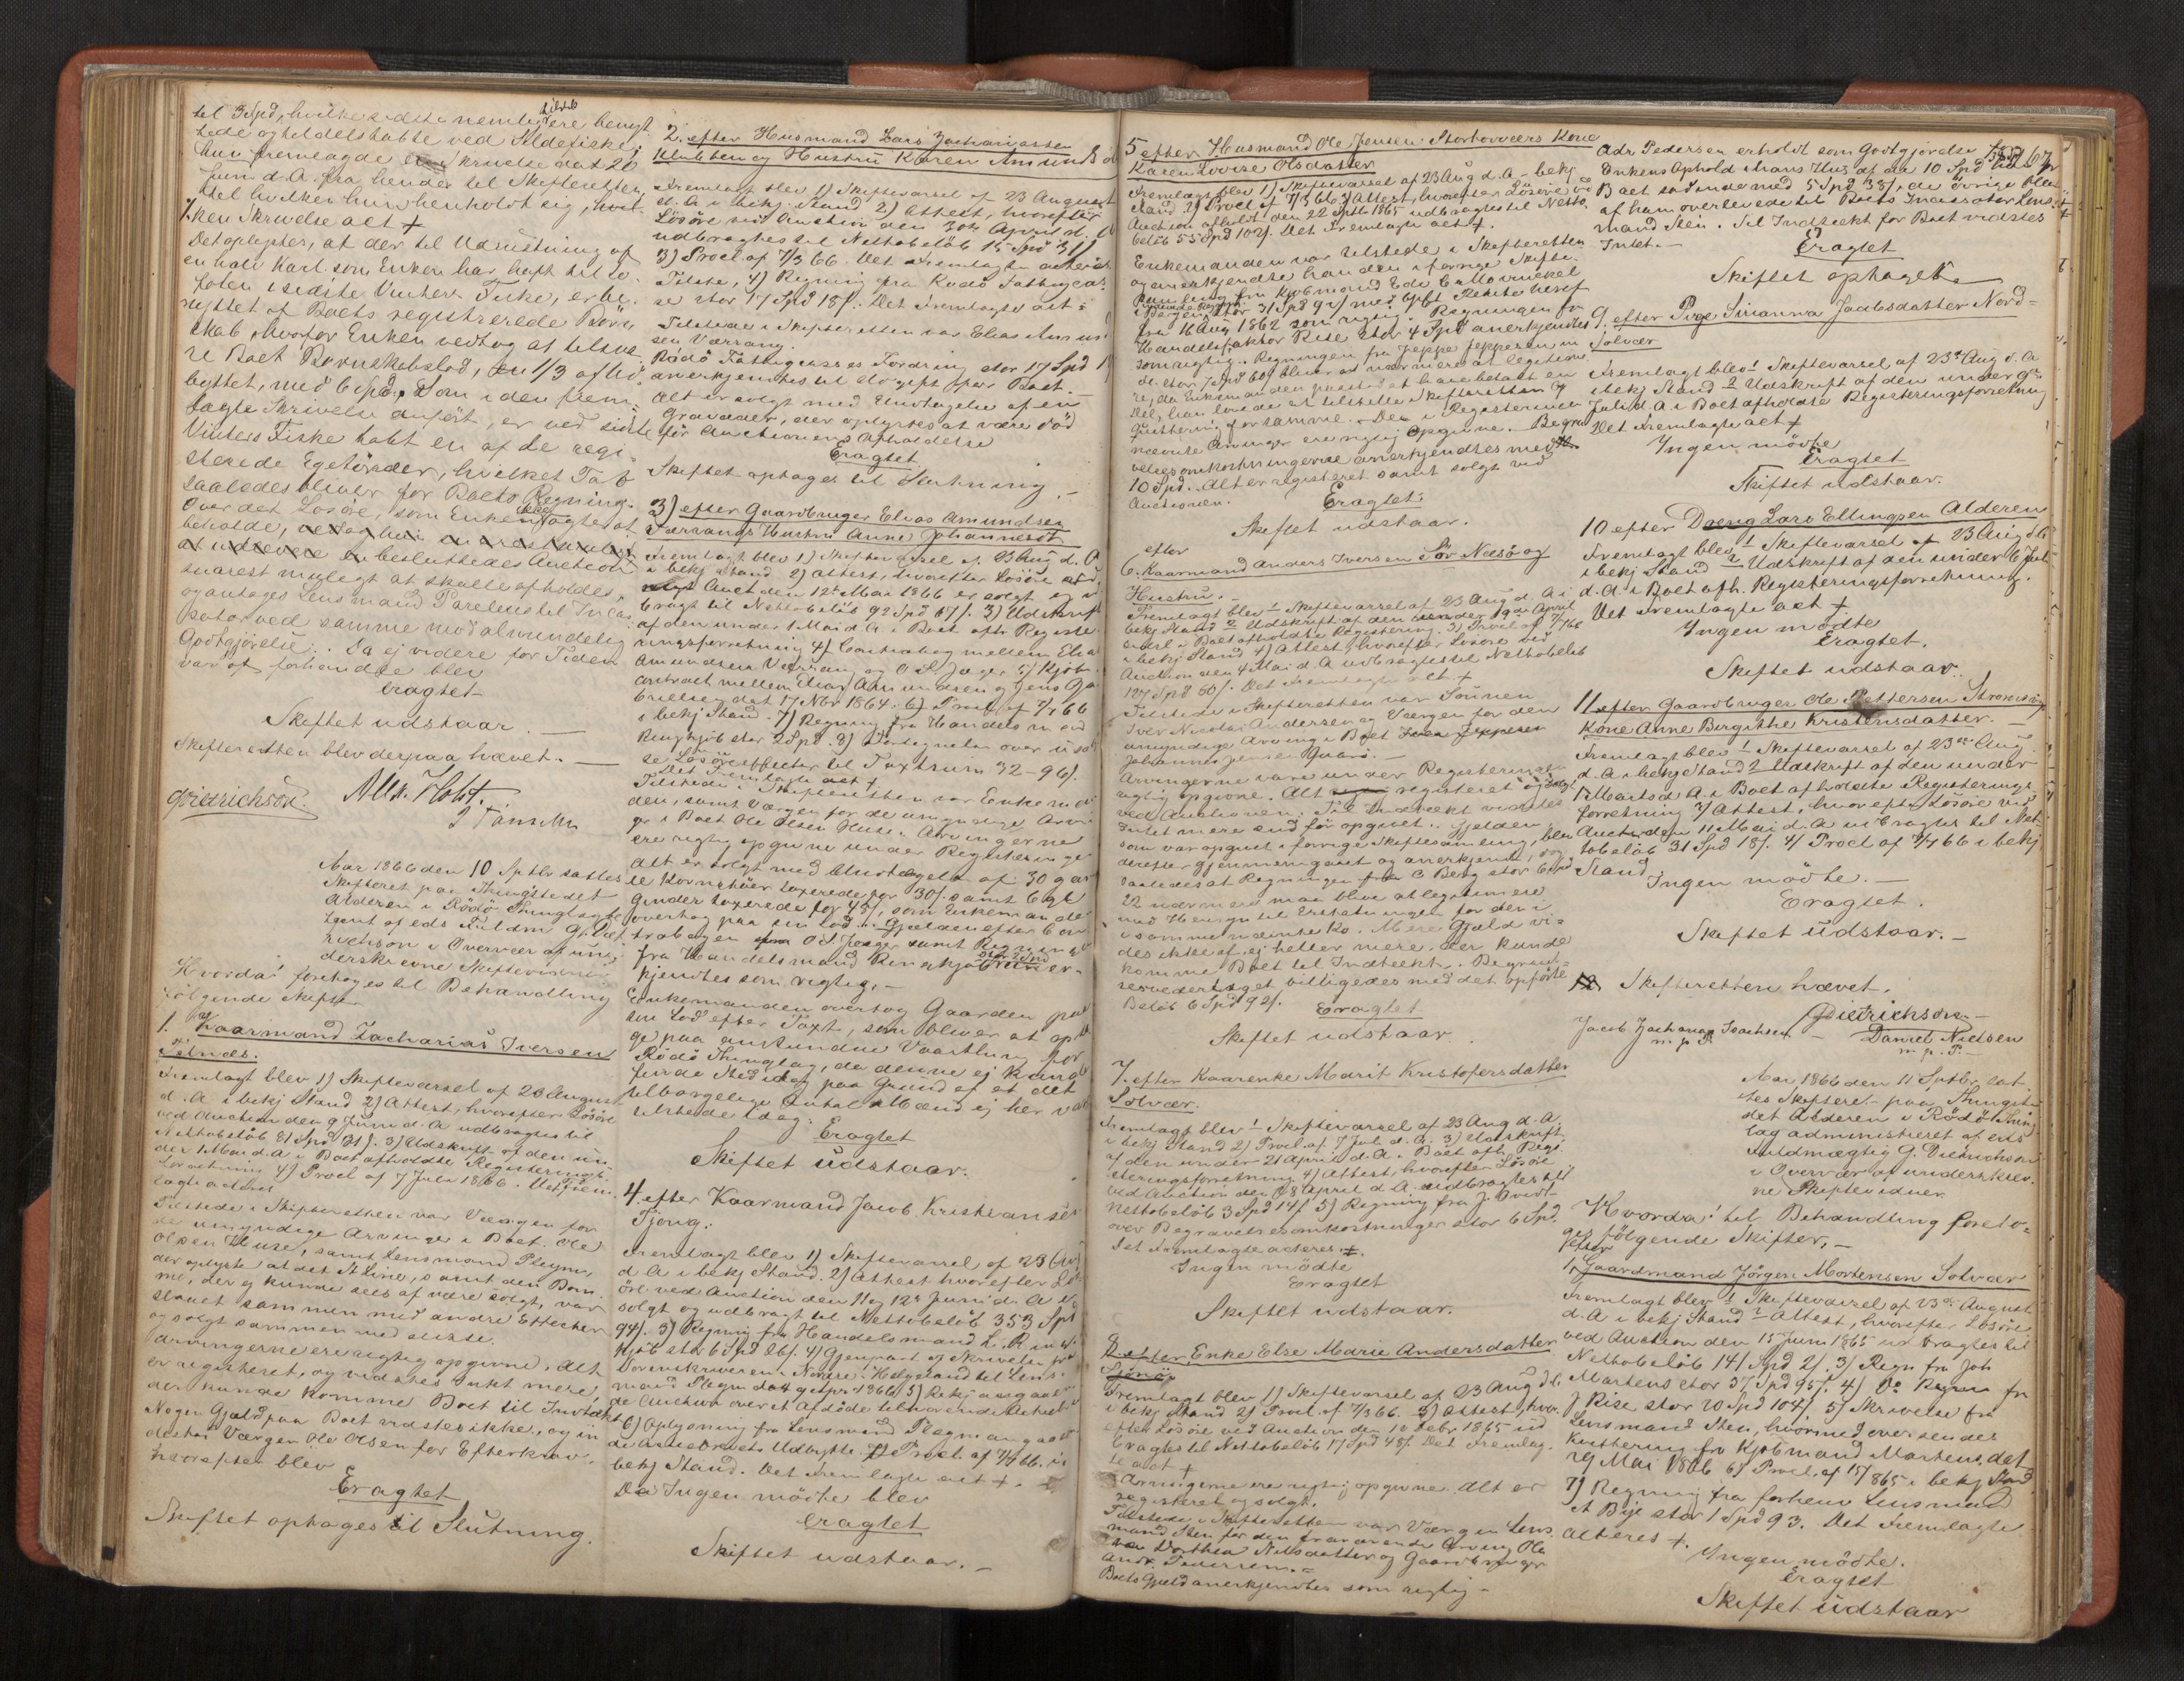 til 3 Spd, hvilke sidste nemlig tilstede
ere benyt
tede og heldelskabte ved Sildefiske
hun fremlagde en Skrivelse dat 20
Juni d.A. fra hende til Skifteretten
til hvilken hun henholdt sig, hvil
ken Skrivelse act +
Det oplystes, at der til Udrustning af
en halv Karl som Enken har havt til Lo
foten i sidste Vinters Fiske, er be
nyttet af Boets registrerede
skab, hvorfor Enken vedtog at tilsva
re Boet
byttet, med 6 Spd. Som i den frem
lagte Skrivelse anført, er ved sidste
Vinters Fiske tabt en af de regi
strerede Egetønder, hvilket Tab
saaledes bliver for Boets Regning.
Over det Løsøre, som Enken ikke agtede at
beholde,
besluttedes Auction
snarest muligt at skulle afholdes,
og antages Lensmand til Incas
sator ved samme mod almindelig
Godtgjørelse. Da ej videre for Tiden
var at forhandle blev
Eragtet
Skiftet udstaar.
Skifteretten blev derpaa hævet.
G Dietrichson. Alex. Holst.
Aar 1866 den 10 Sptbr sattes
Skifteret paa Thingstedet
Alderen i Rödö Thinglag
af eds Fuldm G. Diet
richson i Overvær af un
derskrevne Skiftevidner
Hvorda! foretoges til Behandling
følgende Skifter
1. Kaarmand Zacharias Iversen
Selnæs.
Fremlagt blev 1) Skiftevarsel af 23 August
d.A. i bekj Stand 2) Attest, hvorefter Løsöre
ved Auction den 9 Juni d.A. udbragtes til
Nettobeløb 81 Spd 31 s. 3) Udskrift af den un
der 1 Mai d.A. i Boet afholdte Registerings
forretning 4) Procl af 7 Juli 1866. Det Frem
lagte acteres
Tilstede i Skifteretten var Værgen for
de umyndige Arvinger i Boet Ole
Olsen Huse, samt Lensmand Plegm,
der oplyste at det 1 Line, samt den Bom
me, der ej kunde sees at være solgt, var
slaaet sammen med andre Effecter
og solgt sammen med disse.
Arvingerne ere rigtig opgivne. Alt
er registreret, og vidstes Intet mere
der kunde komme Boet til Indtækt
Nogen Gjæld paa Boet vidstes ikke, og in
destod Værgen Ole Olsen for Efterkrav,
hvorefter blev
Eragtet
Skiftet optages til Slutning.
2. efter Husmand Lars Zachariassen
Klubben og Hustru Karen Amundsd
Fremlagt blev 1) Skiftevarsel af 23 August
d.A. i bekj. Stand 2) Attest, hvorefter
Løsöre ved Auction den 30te April d.A.
udbragtes til Nettobeløb 15 Spd 31 s
3) Procl af 7/3 66. Det Fremlagte acteres
Tilste, 4) Regning fra Rödö Fattigcas
se stor 17 Spd 18 s. Det Fremlagte act =
Tilstede i Skifteretten var Elias Amund
sen Værrang.
Rödö Fattigcasses Fordring stor 17 Spd 18
anerkjendtes til Udgift for Boet.
Alt er solgt med Undtagelse af en
Gravaaer, der oplystes at være död
før Auctionens Afholdelse
Eragtet
Skiftet optages til Slutning.
3) efter Gaardbruger Elias Amundsen
Værrangs Hustru Anne Johannesdt
Fremlagt blev 1) Skiftevarsel af 23 Aug d.A.
i bekj Stand 2) Attest, hvorefter Løsöre ad
Auct den 12te Mai 1866 er solgt og ud
bragt til Nettobeløb 92 Spd 67 s. 3) Udskrift
af den under 1 Mai d.A. i Boet afh Registe
ringsforretning 4) Contrabog mellem Elias
Amundsen Værrang og O S Jæger 5) Kjöb
contract mellem Elias Amundsen og Jens
dat 17 Nbr 1864. 6) Procl af 7/7 66
i bekj Stand. 7) Regning fra Handelsmand
Ringkjöb stor 2 Spd. 8) Fortegnelse over usolg
te Løsöreeffecter til Taxtsum 32-96 s.
Det Fremlagte act +
Tilstede i Skifteretten var Enkeman
den, samt Værgen for de umyndige Arvin
ger i Boet Ole Olsen Huse. Arvingerne
ere rigtig opgivne under Registeringen
Alt er solgt med Undtagelse af 30 gar
te Kornstöer taxerede for 30 s. samt 6 gl
Grinder taxerede for 48 s, som Enkemanden
overtog paa sin Lod. Gjælden efter Con
trabogen fra O S Jæger samt Regningen
fra Handelsmand Ringkjöb stor 2 Spd aner
kjendtes som rigtig.
Enkemanden overtog Gaarden paa
sin Lod efter Taxt, som bliver at opta
ge paa anstundne Vaarthing for
Rödö Thinglag, da denne ej kunde
finde Sted idag paa Grund af at det
tilborgelige Antal Mænd ej her var
tilstede idag.
Eragtet
Skiftet udstaar.
4. efter Kaarmand Jacob Kristiansen
Tjong.
Fremlagt blev 1) Skiftevarsel af 23 Aug
d.A. i bekj Stand. 2) Attest hvorefter Løs
öre ved Auction den 11 og 12te Juni d.A. er
solgt og udbragt til Nettobeløb 353 Spd
94 s. 3) Regning fra Handelsmand L. R. Ring
Kjöb stor 6 Spd 86 s. 4) Gjenpart af Skrivelse fra
Sorenskriveren i Nordre Helgeland til Lens
mand Plegm dat 9 Apr 1866 5) Bekj angaaen
de Auction over et Afdöde tilhørende
6) Oplysning fra Lensmand Plegm angaaen
de Udbytte 7) Procl. af 7/7 66. i
bekj Stand. Det Fremlagte act +.
Da Ingen mödte blev
Eragtet
Skiftet udstaar.
5 efter Husmand Ole Jensen Storhovæers Kone
Karen Lovise Olsdatter
Fremlagt blev 1) Skiftevarsel af 23 Aug d.A. bekj
Stand 2) Procl af 7/3 66 3) Attest, hvorefter Löseöre ved
Auction afholdt den 22 Sptb 1865 udbragtes til Netto
beløb 55 Spd 102 s. Det Fremlagte act +.
Enkemanden var tilstede i Skifteretten
og anerkjendte han den i forrige Skifte
samling fra Kjøbmand Edv
i Bergen stor 31 Spd 9 s med 4 pCt Rente deraf
fra 16 Aug 1862 som rigtig. Regningen fra
Handelsfaktor Rise stor 4 Spd anerkjendtes
som rigtig. Regningen fra Jeppe Jeppesen
stor 7 Spd 60 s bliver at nærmere at legitime
re, da Enkemanden paastod at have betalt en
Del, han lovede at tilstille Skifteretten
Quittering for samme. Den i Registeringen
nævnte Arvinger ere rigtig opgivne. Begra
velsesomkostningerne anerkjendtes med
10 Spd. Alt er registeret samt solgt ved
Auctionen.
Eragtet:
Skiftet udstaar.
efter
6. Kaarmand Anders Iversen Sör Næsö og
Hustru.
Fremlagt blev 1 Skiftevarsel af 23 Aug d.A. i
bekj Stand 2 Udskrift af den under 19de April
i Boet afholdte Registering. 3) Procl af 7/7 66
i bekj Stand 4) Attest, hvorefter Løsöre ved
Auction den 4 Mai d.A. udbragtes til Nettobeløb
127 Spd 60 s. Det Fremlagte act. +
Tilstede i Skifteretten var Sönnen
Iver Nicolai Andersen og Værgen for den
umyndige Arving i Boet
Johannes Jensen
Arvingerne vare under Registeringen
rigtig opgivne. Alt registeret og solgt
ved Auctionen. Til Indtækt vidstes
Intet mere end før opgivet. Gjælden,
som var opgivet i forrige Skiftesamling, blev
derefter gjennemgaaet og anerkjendt, dog
saaledes at Regningen fra C Berg stor 6 Spd
22 nærmere maa blive at legitimere
med Hensyn til Erstatningen for den i
i samme nævnte Ko. Mere Gjæld vi=
des ikke af, ej heller mere, der kunde
komme Boet til Indtækt. Begrav=
velsesvederlaget billigedes med det opførte
Beløb 6 Spd 92 s.
Eragtet
Skiftet udstaar
7. efter Kaarenke Marit Kristofersdatter
Solvær.
Fremlagt blev 1 Skiftevarsel af 23 Aug d.A.
i bekj Stand 2) Procl. af 7 Juli d.A. 3) Udskrift
af den under 21 April d.A. i Boet afh Regi
steringsforretning 4) Attest, hvorefter Løsöre
ved Auction den 28 April d.A. udbragtes til
Nettobeløb 3 Spd 14 s 5) Regning fra J.
over Begravelsesomkostninger stor 6 Spd.
Det Fremlagte acteres. +.
Ingen mödte
Eragtet
Skiftet udstaar.
8. efter Enke Else Marie Andersdatter
Fremlagt blev 1) Skiftevarsel af 23 Aug d.A.
i bekj Stand 2) Procl. af 7/3 66. 3) Attest, hvor
efter Løsöre ved Auction den 12 Febr 1865 ud
bragtes til Nettobeløb 17 Spd 48 s. Det Fremlag
te act +
Arvingerne ere rigtig opgivne. Alt er
registeret og solgt.
Tilstede i Skifteretten var Værgen Lens
mand Sten for den fraværende Arving Ole
Dorthea Nilsdatter og Gaardbruger
Andr. Pedersen. =
Boets Gjæld anerkjendtes som rigtig =
167
Adr Pedersen erholdt som Godtgjørelse for
Enkens Ophold i hans Hus af de 10 Spd
Boet indvundne med 5 Spd 38 s, de övrige blev
af ham overleverede til Boets Incassator Lens=
mand Sten. Til Indtækt for Boet vidstes
Intet.
Eragtet
Skiftet optaget.
9. efter Pige Sirianna Jacobsdatter Nord=
Solvær
Fremlagt blev 1 Skiftevarsel af 23de Aug d.A.
i bekj Stand 2 Udskrift af den under 9de
Juli d.A. i Boet afholdte Registeringsforretning
Det Fremlagte act +
Ingen mödte
Eragtet
Skiftet udstaar.
10 efter Dreng Lars Ellingsen Alderen
Fremlagt blev 1 Skiftevarsel af 23 Aug d.A.
i bekj Stand 2 Udskrift af den under 6 Juli
d.A. i Boet afh. Registeringsforretning.
Det Fremlagte act +
Ingen mödte
Eragtet.
Skiftet udstaar.
11 efter Gaardbruger Ole Pettersen Strömsvig
Kone Anne Bergithe Kristensdatter.
Fremlagt blev 1 Skiftevarsel af 23de Aug
d.A. i bekj Stand 2 Udskrift af den under
17 Marts d.A. i Boet afholdte Registerings
forretning 3) Attest, hvorefter Løsöre ved
Auct. den 11 Mai d.A. udbragtes til Net
tobeløb 31 Spd 18 s. 4) Procl af 7/7 66 i bekj
Stand
Ingen mödte.
Eragtet.
Skiftet udstaar.
Skifteretten hævet.
G Dietrichson
Jacob Zacharias Isachsen
m.p.P.
Daniel Nielsen
m.p.P.
Aar 1866 den 11 Sptbr. sat
tes Skifteret paa Thingste
det Alderen i Rödö Thing
lag administreret af eds
Fuldmægtig G. Dietrichson
i Overvær af underskrev
ne Skiftevidner
Hvorda! til Behandling foreto=
ges følgende Skifter,
efter
1, Gaardmand Jörgen Mortensen Solvær
Fremlagt blev 1 Skiftevarsel af 23de August
d.A. i bekj Stand 2 Attest, hvorefter Løsöre
ved Auction den 15 Juni 1865 udbragtes til
Nettobeløb 141 Spd 2 s. 3) Regn fra Joh
Martens stor 37 Spd 95 s. 4) Do Regn fra
J Rise stor 20 Spd 104 s 5) Skrivelse fra
Lensmand Sten, hvormed oversendes
Kvittering fra Kjöbmand Martens, dat
29 Mai 1866 6) Procl. af 15/7 865 i bekj Stand
7) Regning fra forhenv Lensmand
A Bye stor 1 Spd 93. Det Fremlagte
acteres +.
Ingen mödte.
Eragtet
Skiftet udstaar